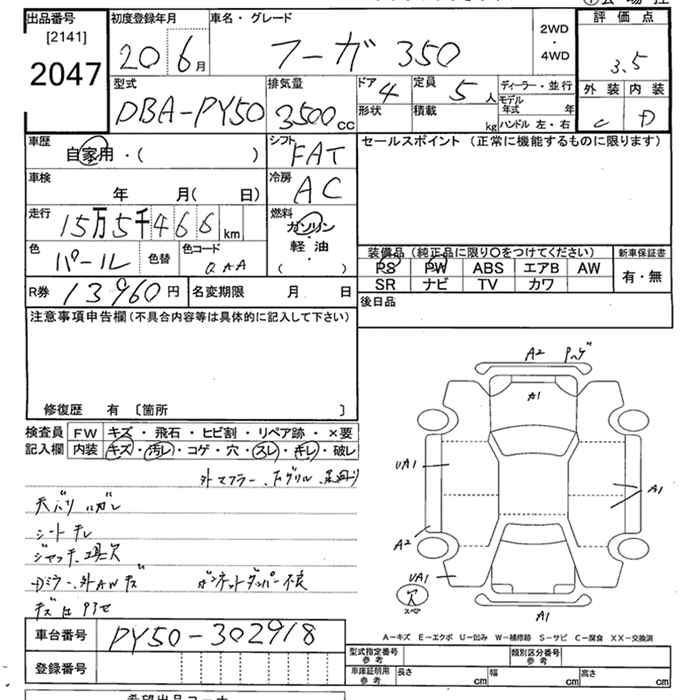 出品番号
[2141]
2047
初度登録年月
20 6月
車名・グレード
フーガ 350
2WD
・
4WD
評価点
3.5
外装 内装
C D
型式
DBA-PY50
排気量
3500cc
ドア 4
形状
定員 5人
積載 kg
ディーラー・並行
モデル年式 年
ハンドル 左・右
車歴
自家用・( )
シフト
FAT
セールスポイント (正常に機能するものに限ります)
車検
年 月( 日)
冷房
AC
走行
15万5千466km
燃料
ガソリン
軽・油
( )
色
パール
色替
色コード
QAA
装備品 (純正品に限り○をつけてください)
PS PW ABS エアB AW
SR ナビ TV カワ
新車保証書
有・無
R券 13960円
名変期限 月 日
後日品
注意事項申告欄(不具合内容等は具体的に記入して下さい)
修復歴 有 〔箇所 〕
検査員
記入欄
FW キズ・飛石・ヒビ割・リペア跡・×要
内装 キズ・汚レ・コゲ・穴・スレ・キレ・破レ
外マフラー、Fグリル、足廻り
天バリ ハガレ
シート キレ
ジャッキ、工具欠
Dミラー、外AWキズ
ボンネットダンパー不良
A2
A1
UA1
A1
A2
UA1
穴
スペア
A1
A−キズ E−エクボ U−凹み W−補修跡 S−サビ C−腐食 XX−交換済
車台番号
PY50-302918
登録番号
型式指定番号
参考
類別区分番号
参考
車庫証明用
参考
長さ cm
幅 cm
高さ cm
希望出品コーナー